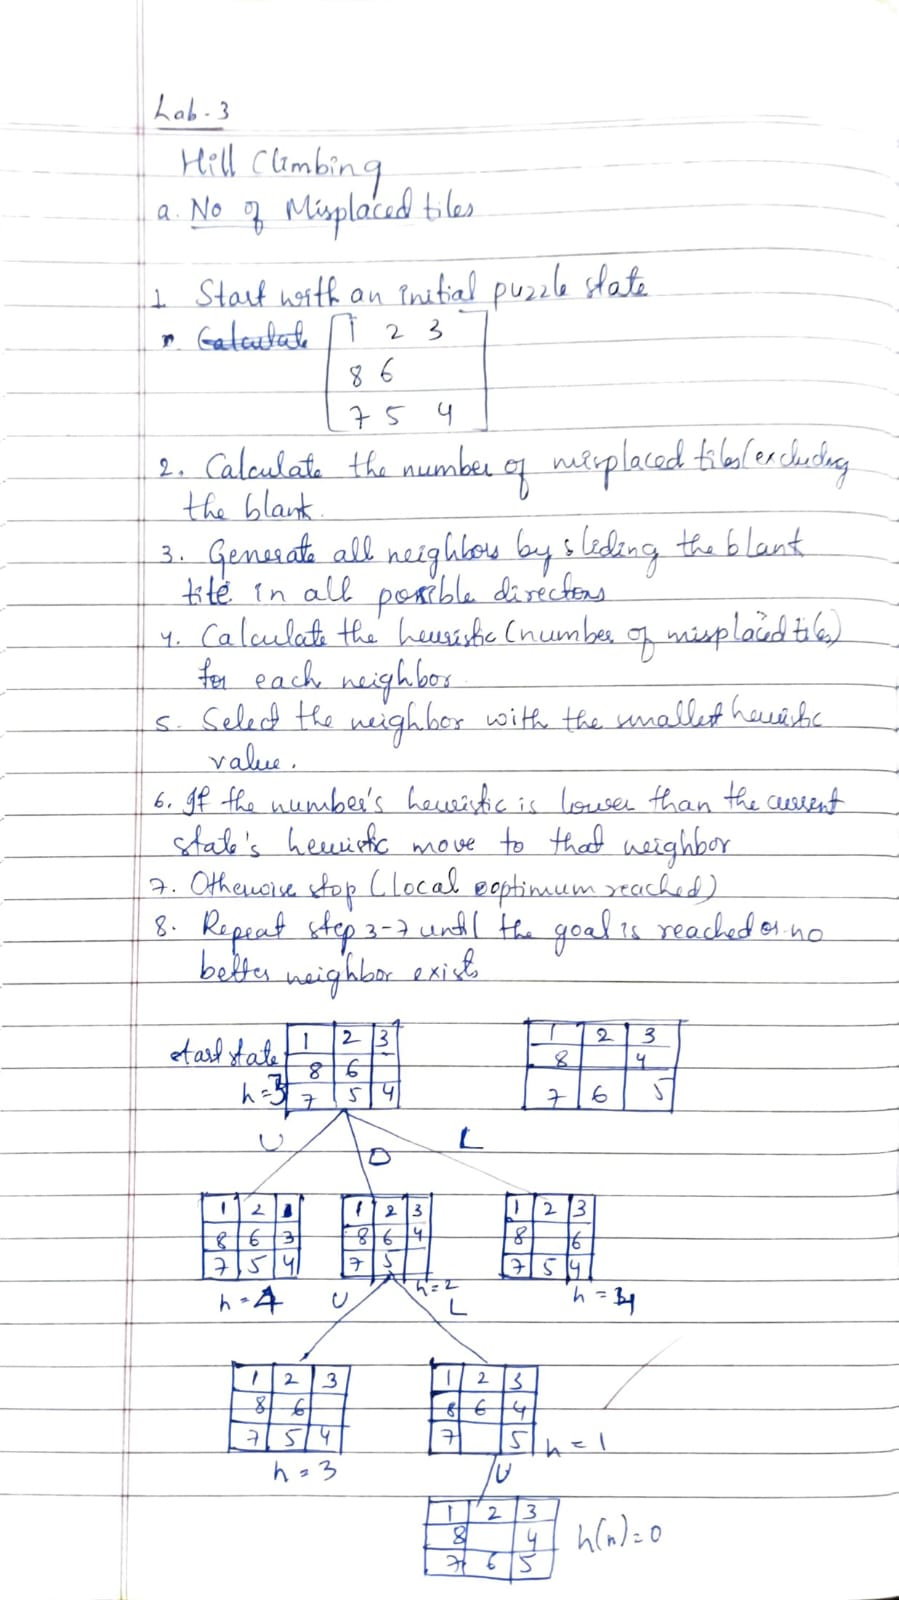 Lab - 3
Hill Climbing
a. No of Misplaced tiles
1. Start with an initial puzzle state
Calculate 1 2 3
8 6
7 5 4
2. Calculate the number of misplaced tiles (excluding
the blank.
3. Generate all neighbors by sliding the blank
tile in all possible directions
4. Calculate the heuristic (number of misplaced tiles)
for each neighbor.
5. Select the neighbor with the smallest heuristic
value.
6. If the number's heuristic is lower than the current
state's heuristic move to that neighbor
7. Otherwise stop (local optimum reached)
8. Repeat step 3-7 until the goal is reached or no
better neighbor exists
start state
h=3
1 2 3
8 6
7 5 4
1 2 3
8 4
7 6 5
U D L
1 2
8 6 3
7 5 4
h = 4
1 2 3
8 6 4
7 5
h = 2
1 2 3
8 6
7 5 4
h = 4
U L
1 2 3
8 6
7 5 4
h = 3
1 2 3
8 6 4
7 5
h = 1
U
1 2 3
8 4
7 6 5
h(n) = 0